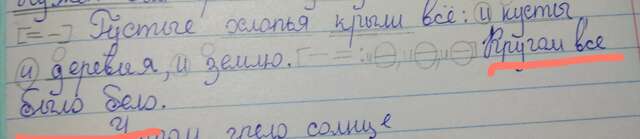 [= –] Густые хлопья крыли всё: и кусты
и деревья, и землю. [– =: и О, и О, и О] Кругом все
было бело.
грело солнце